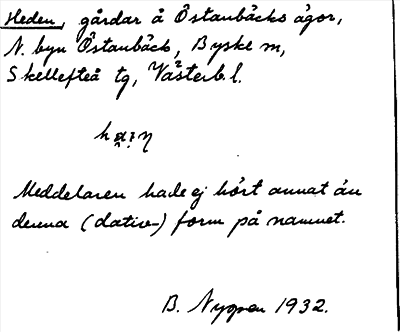 Heden, gårdar å Östanbäcks ägor,
N. byn Östanbäck, Byske m,
Skellefteå tg, Västerb. l.
Meddelaren hade ej hört annat än
denna (dativ-) form på namnet.
B. Nygren 1932.